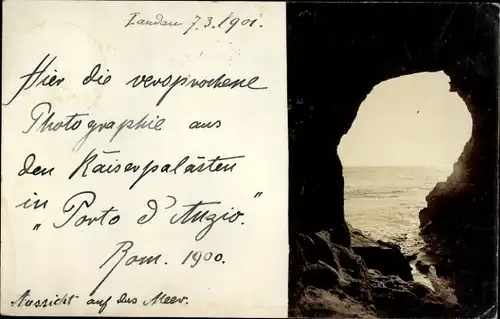 Landau 7.3.1901.
Hier die versprochene
Photographie aus
den Kaiserpalästen
in „Porto d'Anzio."
Rom. 1900.
Aussicht auf das Meer.